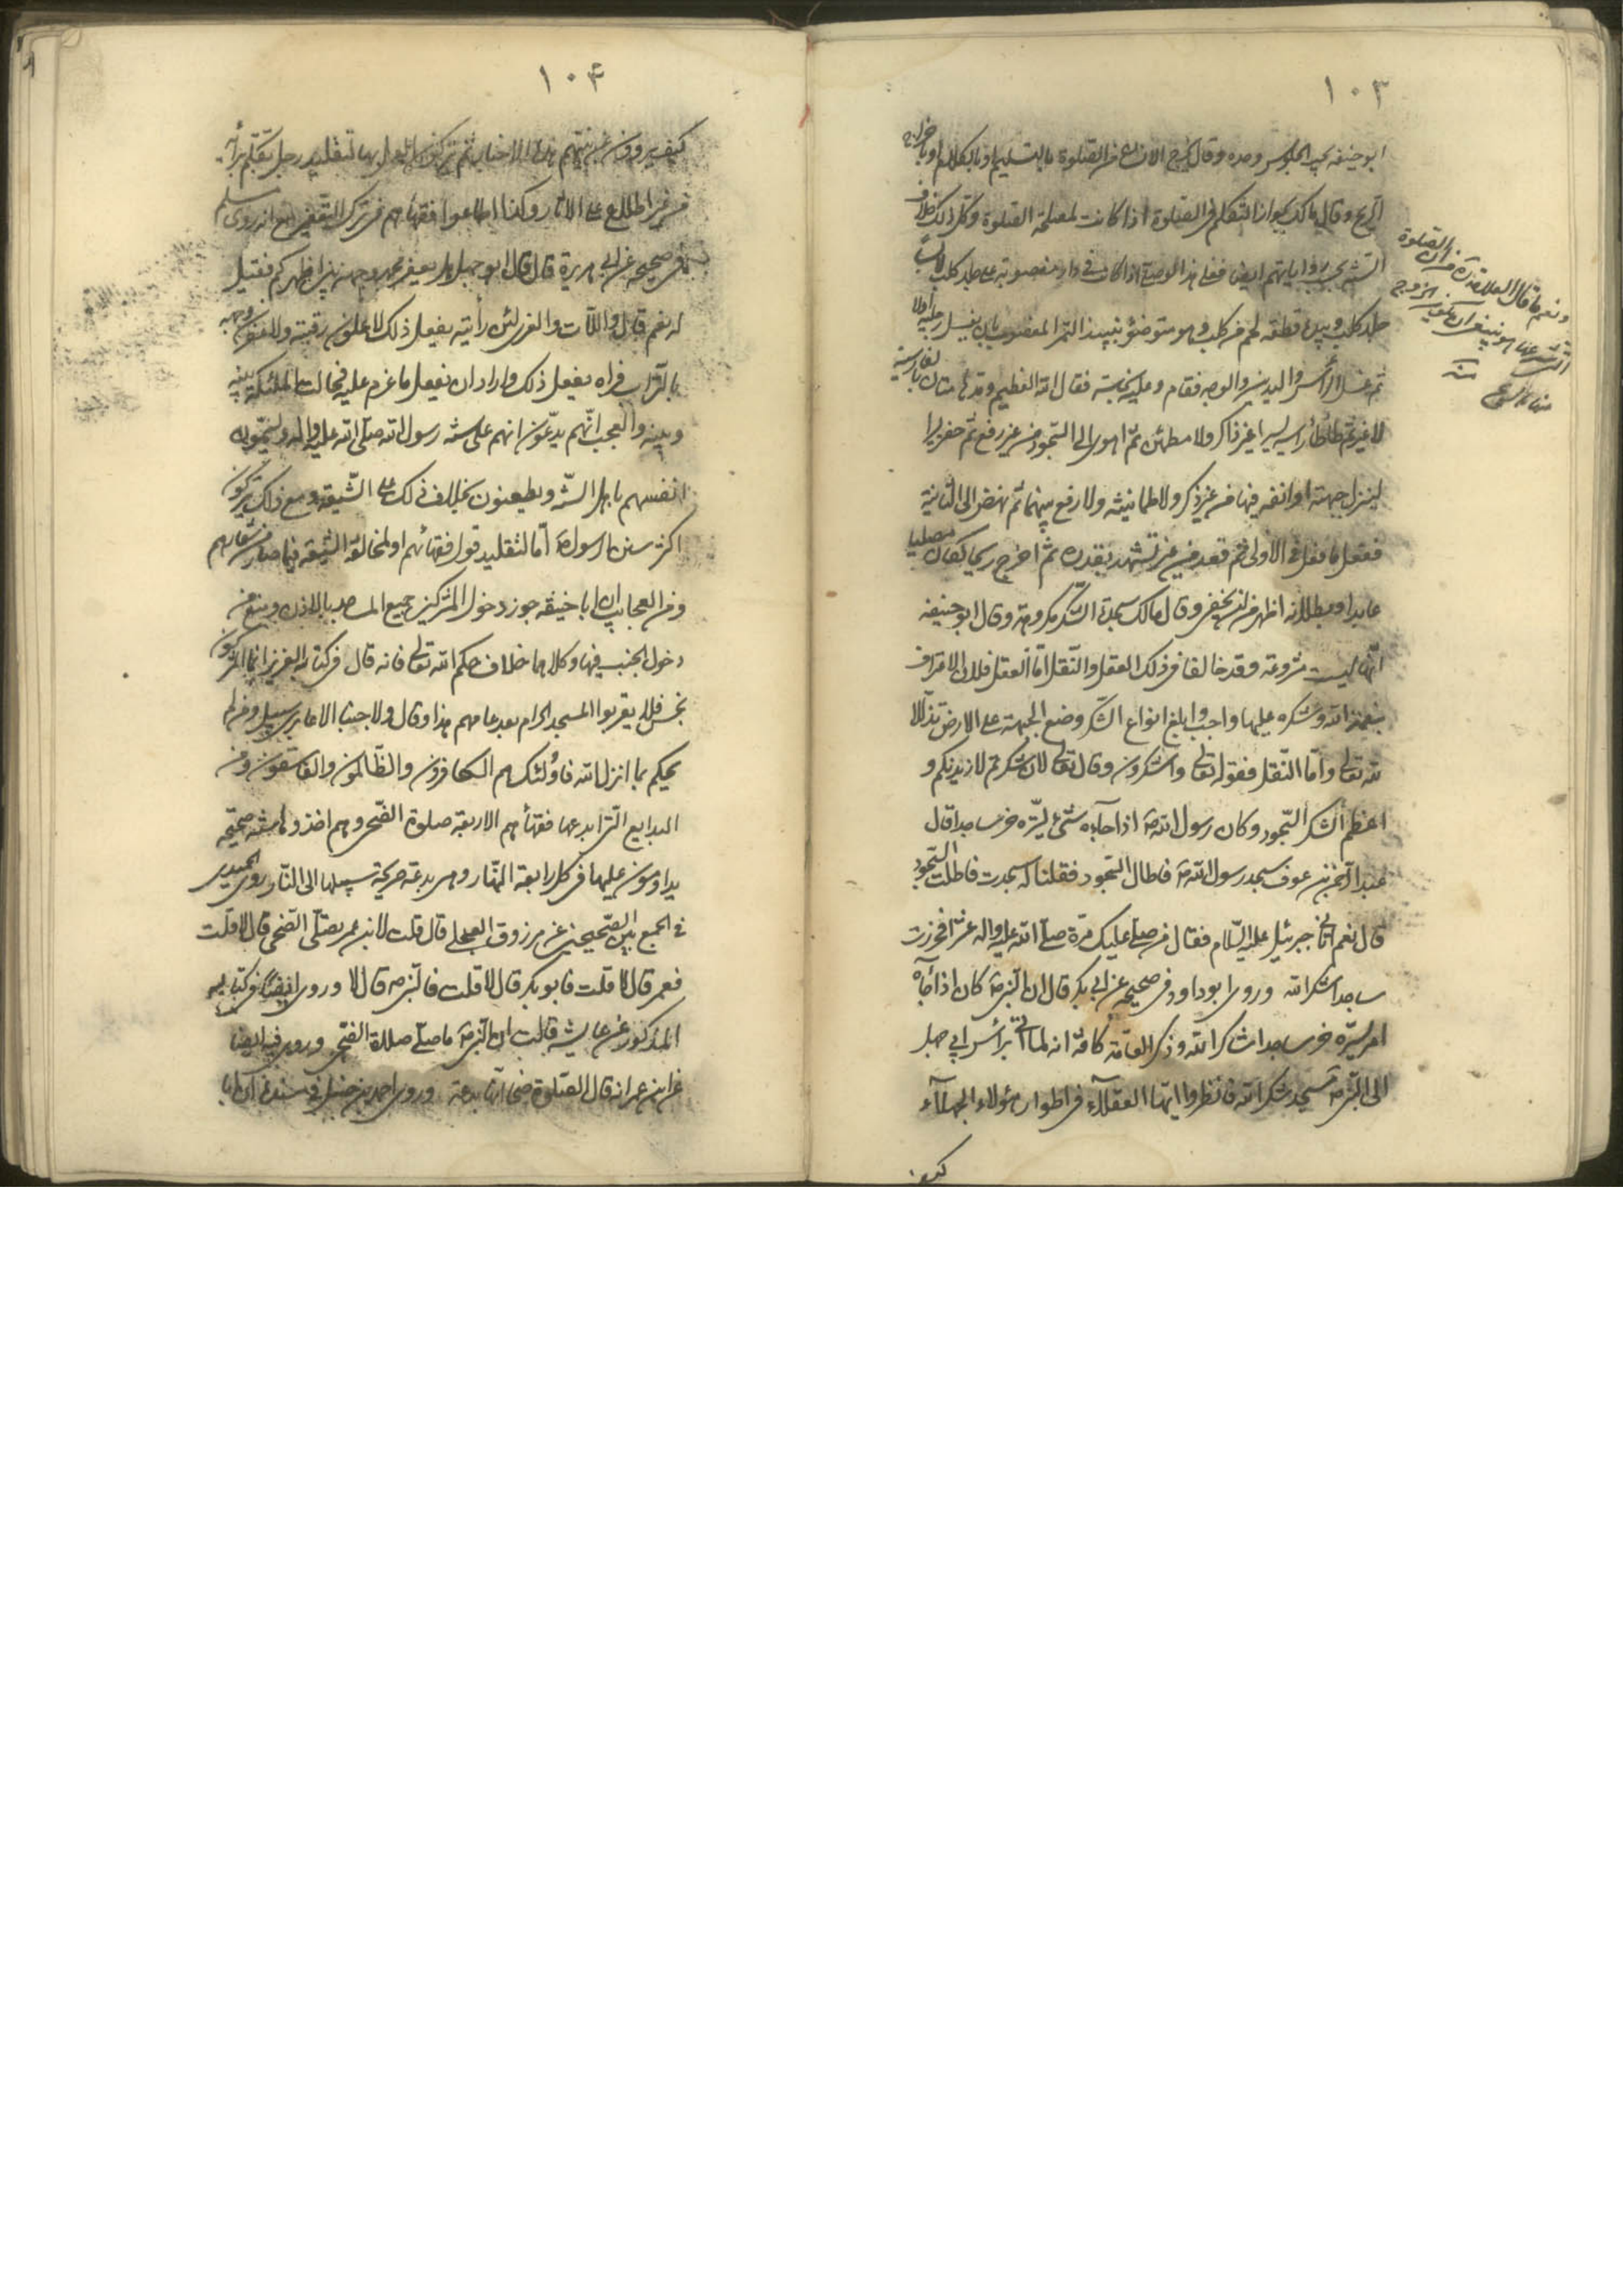 ١٠٣
ابو حنيفه يجب الجلوس وحده وقال يخرج الانسان من الصلوة بالتسليم او بالكلام او بخروج
الريح وقال مالك يجوز التكلم في الصلوة اذا كانت لمصلحة الصلوة وكل ذلك خلاف
الشرع ورواياتهم ايضا فعلى هذا لو صلى اذا كان في دار مغصوبة على جلد كلب لابسا
جلد كلب وبيده قطعة لحم من كلب وهو متوضئ بنبيذ التمر المغصوب بان يغسل رجليه اولا
ثم غسل الرأس واليدين والوجه فقام وعليه نجاسة فقال الله العظيم ومدهامتان بالفارسية
لا غير ثم طأطأ رأسه يسيرا غير ذاكر ولا مطمئن ثم اهوى الى السجود من غير رفع ثم حفر بيرا
لينزل جبهته او انفه فيها من غير ذكر ولا طمانينه ولا رفع بينهما ثم نهض الى الثانية
ففعل ما فعل في الاولى ثم قعد من غير تشهد بقدره ثم اخرج ريحا لكان مصليا
عابدا وبطلانه اظهر من ان يخفى وقال مالك سجدة الشكر مكروهة وقال ابو حنيفه
انها ليست مشروعة وقد خالفا في ذلك العقل والنقل اما العقل فلان الاعتراف
بنعمة الله وشكره عليها واجب وابلغ انواع الشكر وضع الجبهة على الارض تذللا
لله تعالى واما النقل فقوله تعالى واشكرون وقال تعالى لان شكرتم لازيدنكم و
اعظم الشكر السجود وكان رسول الله ص اذا جاءه شئ يسره خر ساجدا قال
عبد الرحمن بن عوف سجد رسول الله ص فاطال السجود فقلنا له سجدت فاطلت السجود
قال نعم اتاني جبرئيل عليه السلام فقال من صلى عليك مرة صلى الله عليه واله عشرا فخررت
ساجدا شكرا لله وروى ابو داود في صحيحه عن ابي بكر قال ان النبي ص كان اذا جآءه
امر يسره خر ساجدا شكرا لله وذكر العامة كافة انه لما اتي برأس ابي جهل
الى النبي ص سجد شكرا لله فانظروا ايها العقلآء في اطوار هؤلاء الجهلآء
كيف
ونعم ما قال العلامة
١٠٤
كيف يروون عن نبيهم هذه الاخبار ثم يتركون العمل بها لتقليد رجل يتكلم برأيه
من غير اطلاع على الاثار وكذا اطاعوا فقهاءهم في ترك التعفير مع انه روى مسلم
في صحيحه عن ابي هريرة قال قال ابو جهل هل يعفر محمد وجهه بين اظهركم فقيل
له نعم قال واللات والعزى لئن رأيته يفعل ذلك لاطأن رقبته ولاعفرن وجهه
بالتراب فراه يفعل ذلك واراد ان يفعل ما عزم عليه فحالت الملئكة بينه
وبينه والعجب انهم يدعون انهم على سنة رسول الله صلى الله عليه واله ويسمون
انفسهم باهل السنة ويطعنون بخلاف ذلك على الشيعة ومع ذلك يتركون
اكثر سنن الرسول ص اما لتقليد قول فقهائهم او لمخالفة الشيعة فيما صار من شعارهم
ومن العجايب ان ابا حنيفه جوز دخول المشركين جميع المساجد بالاذن ومنع من
دخول الجنب فيها وكلاهما خلاف حكم الله تعالى فانه قال في كتابه العزيز انما المشركون
نجس فلا يقربوا المسجد الحرام بعد عامهم هذا وقال ولا جنبا الا عابري سبيل ومن لم
يحكم بما انزل الله فاولئك هم الكافرون والظالمون والفاسقون ومن
البدايع التي ابدعها فقهاءهم الاربعة صلوة الضحى وهم اخذوها سنة صحيحه
يداومون عليها في كل رابعة النهار وهي بدعة صريحة سبيلها الى النار روى الحميدي
في الجمع بين الصحيحين عن مرزوق العجلي قال قلت لابن عمر يصلي الضحى قال لا قلت
فعمر قال لا قلت فابو بكر قال لا قلت فالنبي ص قال لا وروى ايضا في كتابه
المذكور عن عايشه قالت ان النبي ص ما صلى صلاة الضحى وروى فيه ايضا
عن ابن عمر انه قال الصلوة ضحى انها بدعة وروى احمد بن حنبل في مسنده ان ابا